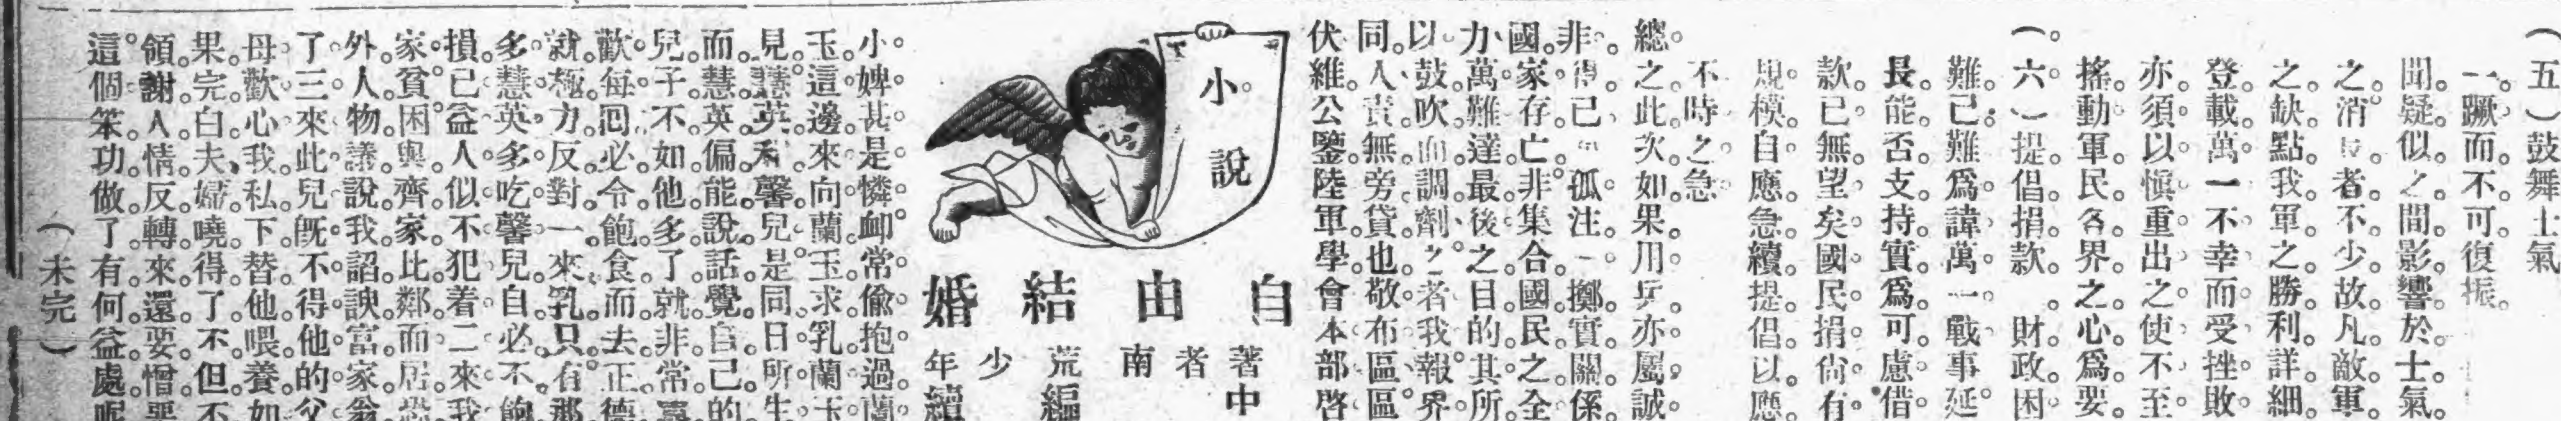 （五）鼓舞士氣
一蹶而不可復振
聞疑似之間影響於士氣
之消長者不少故凡敵軍
之缺點我軍之勝利詳細
登載萬一不幸而受挫敗
亦須以愼重出之使不至
搖動軍民各界之心爲要
（六）提倡捐款 財政困
難已難爲諱萬一戰事延
長能否支持實爲可慮借
款已無望矣國民捐尙有
規模自應急續提倡以應
不時之急
總之此次如果用兵亦屬誠
非得已孤注一擲實關係
國家存亡非集合國民之全
力萬難達最後之目的其所
以鼓吹而調劑之者我報界
同人責無旁貸也敬布區區
伏維公鑒陸軍學會本部啓
小說
自由結婚
著者 南荒少年
中編 續
小婢甚是憐卹常偷抱過蘭
玉這邊來向蘭玉求乳蘭玉
見慧英和馨兒是同日所生
而慧英偏能說話覺自己的
兒子不如他多了就非常
歡每回必令飽食而去正德
就極力反對一來乳只有那
多慧英多吃馨兒自必不飽
損已益人似不犯着二來我
家貧困與齊家比鄰而居恐
外人物議說我諂諛富家翁
了三來此兒旣不得他的父
母歡心我私下替他喂養如
果完白夫婦曉得了不但不
領謝人情反轉來還要憎惡
這個笨功做了有何益處呢
（未完）